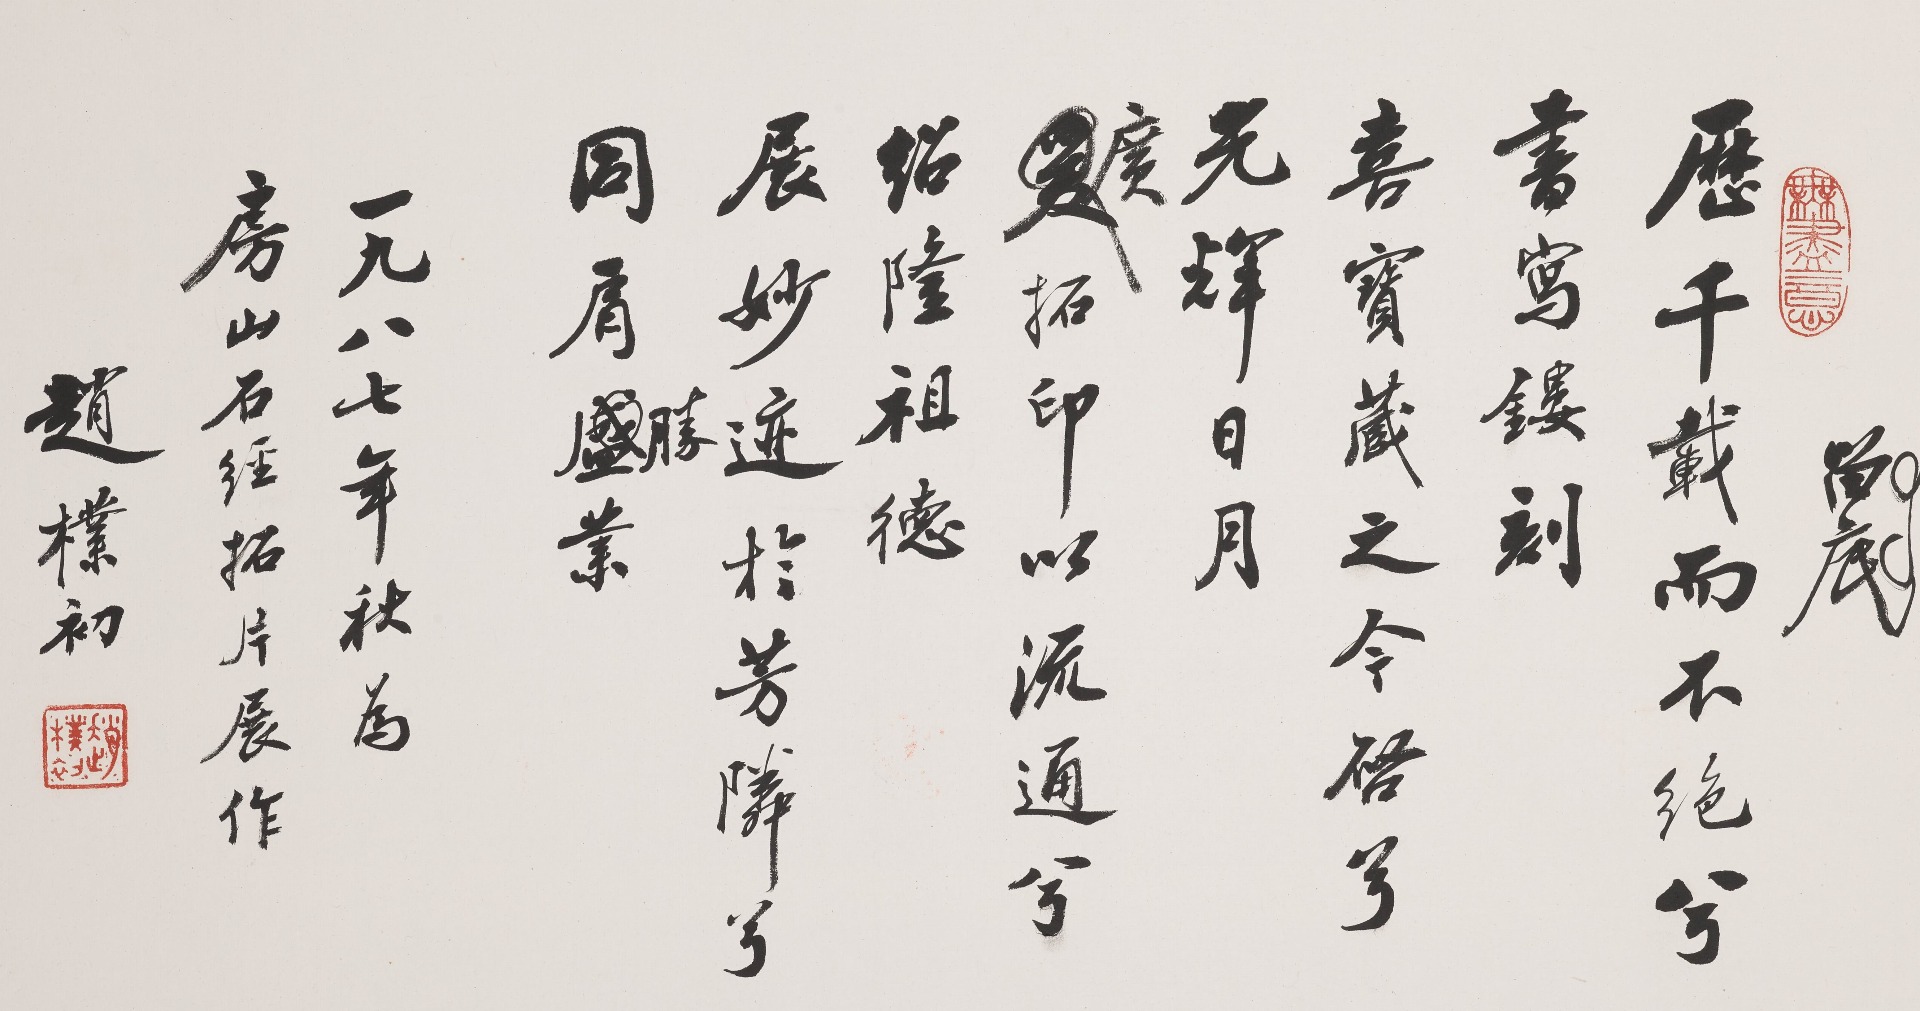 無盡意
留底
歷千載而不絕兮
書寫鏤刻
喜寶藏之今啓兮
光輝日月
廣拓印以流通兮
紹隆祖德
展妙迹於芳隣兮
同肩勝業
一九八七年秋為
房山石經拓片展作
趙樸初
趙樸初